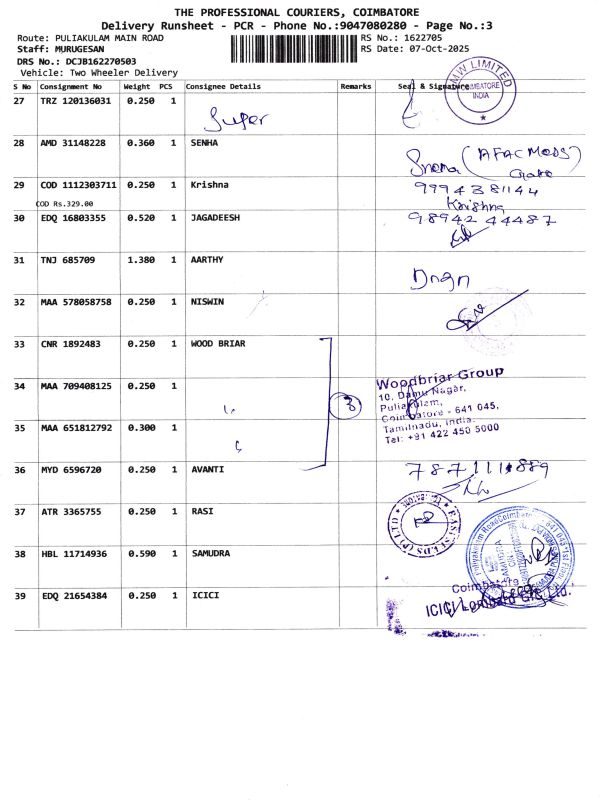 THE PROFESSIONAL COURIERS, COIMBATORE
Delivery Runsheet - PCR - Phone No.:9047080280 - Page No.:3
Route: PULIAKULAM MAIN ROAD RS No.: 1622705
Staff: MURUGESAN RS Date: 07-Oct-2025
DRS No.: DCJB162270503
Vehicle: Two Wheeler Delivery
S No Consignment No Weight PCS Consignee Details Remarks Seal & Signature
LIMITED
COIMBATORE
INDIA
27 TRZ 120136031 0.250 1
Super
28 AMD 31148228 0.360 1 SENHA
29 COD 1112303711 0.250 1 Krishna 9994381144
COD Rs.329.00 Krishna
30 EDQ 16803355 0.520 1 JAGADEESH 98942 44487
31 TNJ 685709 1.380 1 AARTHY
32 MAA 578058758 0.250 1 NISWIN
33 CNR 1892483 0.250 1 WOOD BRIAR
34 MAA 709408125 0.250 1
3
Woodbriar Group
10, Damu Nagar,
Puliakulam,
Coimbatore - 641 045,
Tamilnadu, India.
Tel: +91 422 450 5000
35 MAA 651812792 0.300 1
36 MYD 6596720 0.250 1 AVANTI
37 ATR 3365755 0.250 1 RASI
RASI SEEDS (P) LTD
38 HBL 11714936 0.590 1 SAMUDRA
39 EDQ 21654384 0.250 1 ICICI
Coimbatore
ICICI Lombard GIC Ltd.